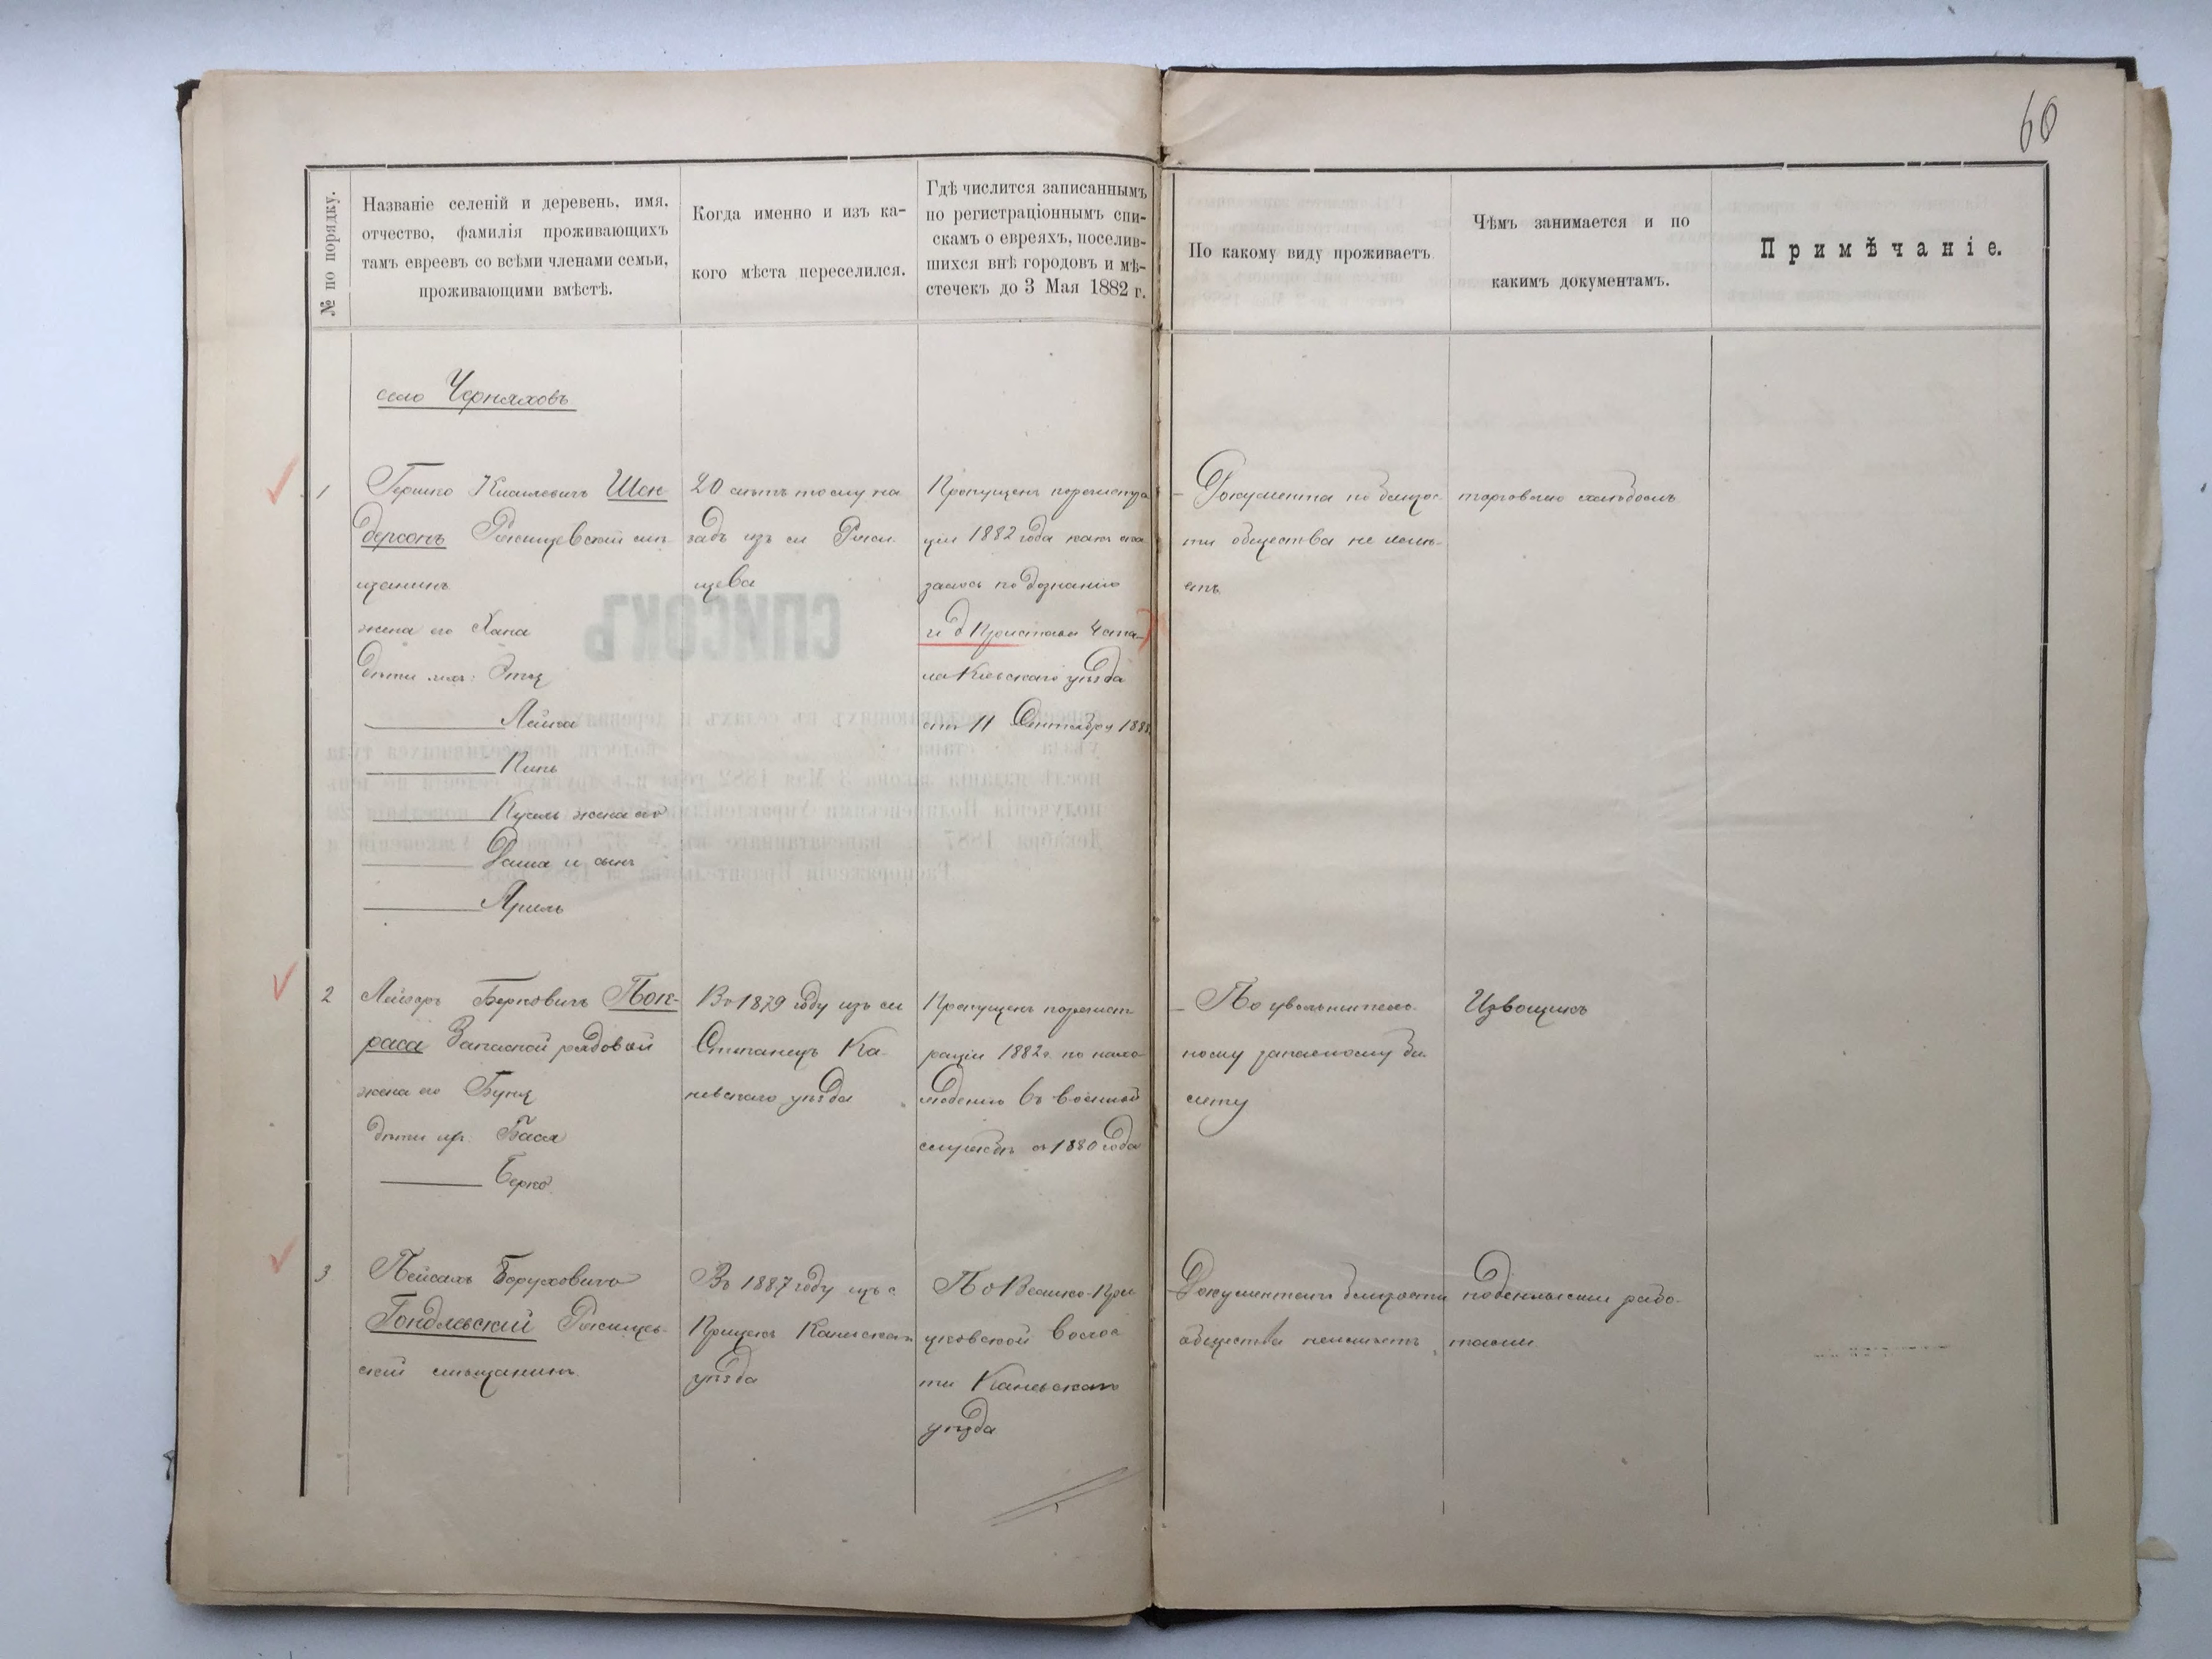 60
№ по порядку.
Названіе селеній и деревень, имя,
отчество, фамилія проживающихъ
тамъ евреевъ со всѣми членами семьи,
проживающими вмѣстѣ.
Когда именно и изъ ка-
кого мѣста переселился.
Гдѣ числится записаннымъ
по регистраціоннымъ спи-
скамъ о евреяхъ, поселив-
шихся внѣ городовъ и мѣ-
стечекъ до 3 Мая 1882 г.
По какому виду проживаетъ.
Чѣмъ занимается и по
какимъ документамъ.
Примѣчаніе.
село Черняховъ
1
Гершко Шен-
дерсонъ Ржищевскій мѣ-
щанинъ
жена его Хана
дѣти
Лейба
Кусель жена его
и сынъ
20 лѣтъ тому на
задъ изъ м Ржи
щева
Пропущенъ
ціи 1882 года какъ ока
залось по дознанію
и д Пристава 4 ста-
на Кіевскаго уѣзда
отъ 11 Сентября
Документа по бытнос-
ти общества не имѣ-
етъ
торговлею хлѣбомъ
2
Лейзеръ Берковичъ
Запасной рядовой
жена его Буня
дѣти их: Бася
Берко
Въ 1879 году изъ м
Степанецъ Ка-
невскаго уѣзда
Пропущенъ
раціи 1882 г. по нахо-
жденію въ военной
службѣ съ 1880 года
По увольнитель-
ному запасному би-
лету
Извощикъ
3
Пейсахъ Боруховичъ
Гондлевскій Ржищев-
скій мѣщанинъ
Въ 1887 году изъ с
Каневскаго
уѣзда
По Велико-При
цковской волос
ти Каневскаго
уѣзда
общества неимѣетъ
поденными рабо-
тами
СПИСОКЪ